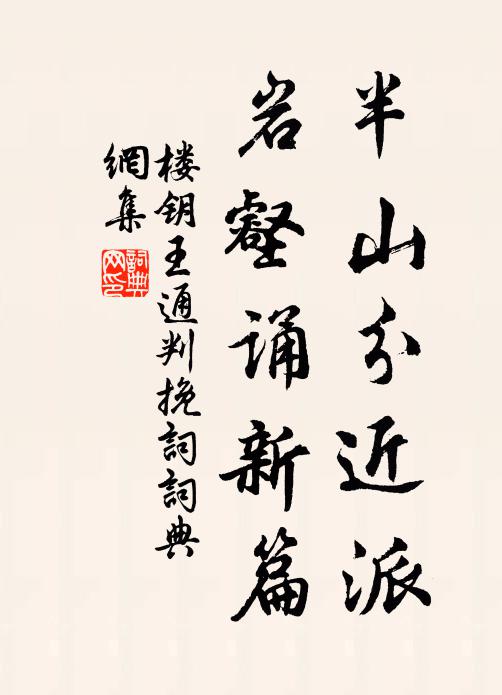 半山分近派
岩壑诵新篇
楼钥王通判挽詞詞典
網集
詞典
网印